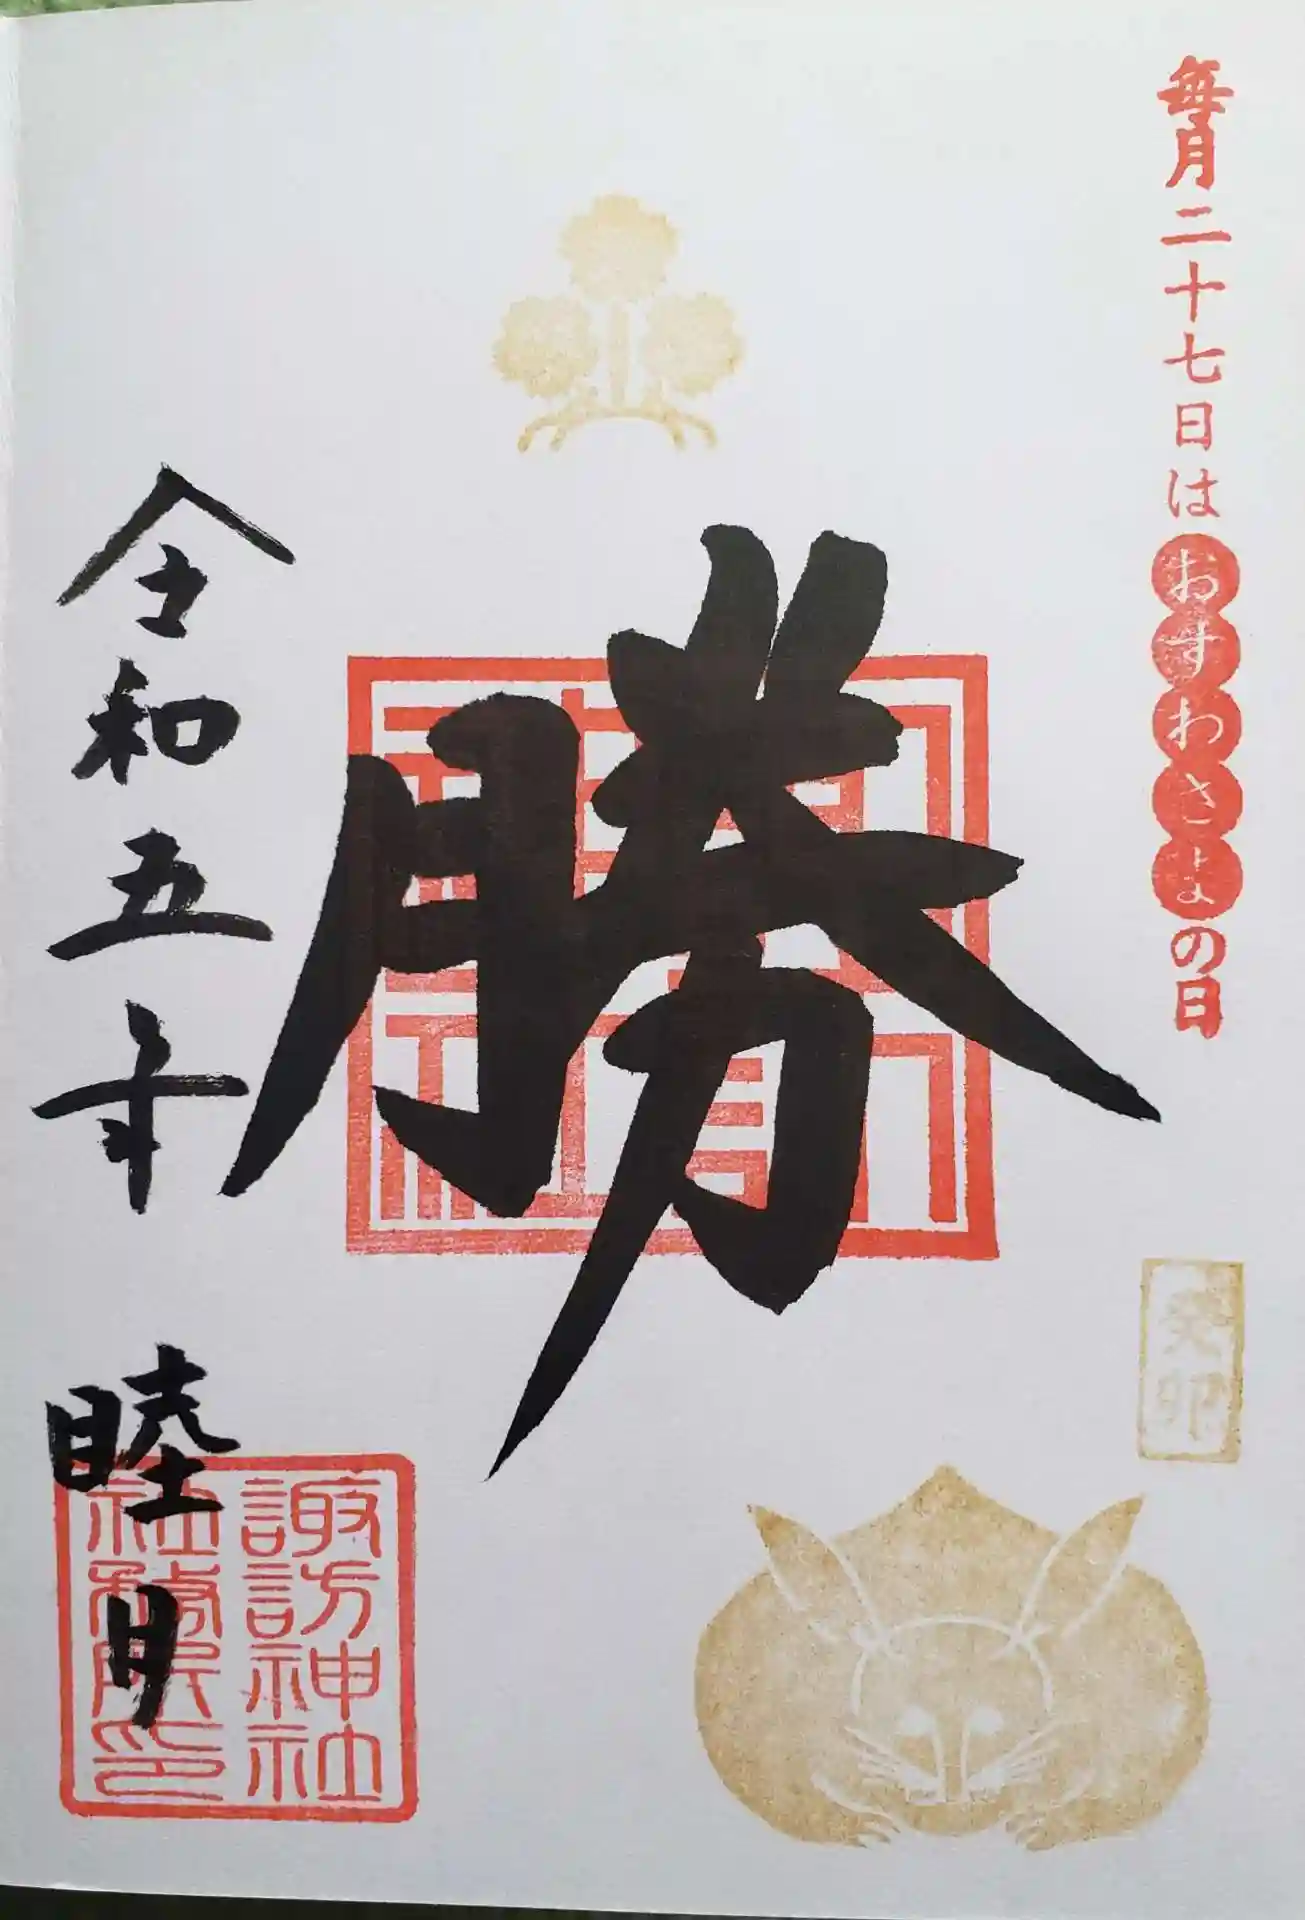 毎月二十七日はおすわさまの日
癸卯
勝
令和五年 睦月
諏訪神社
社務所印